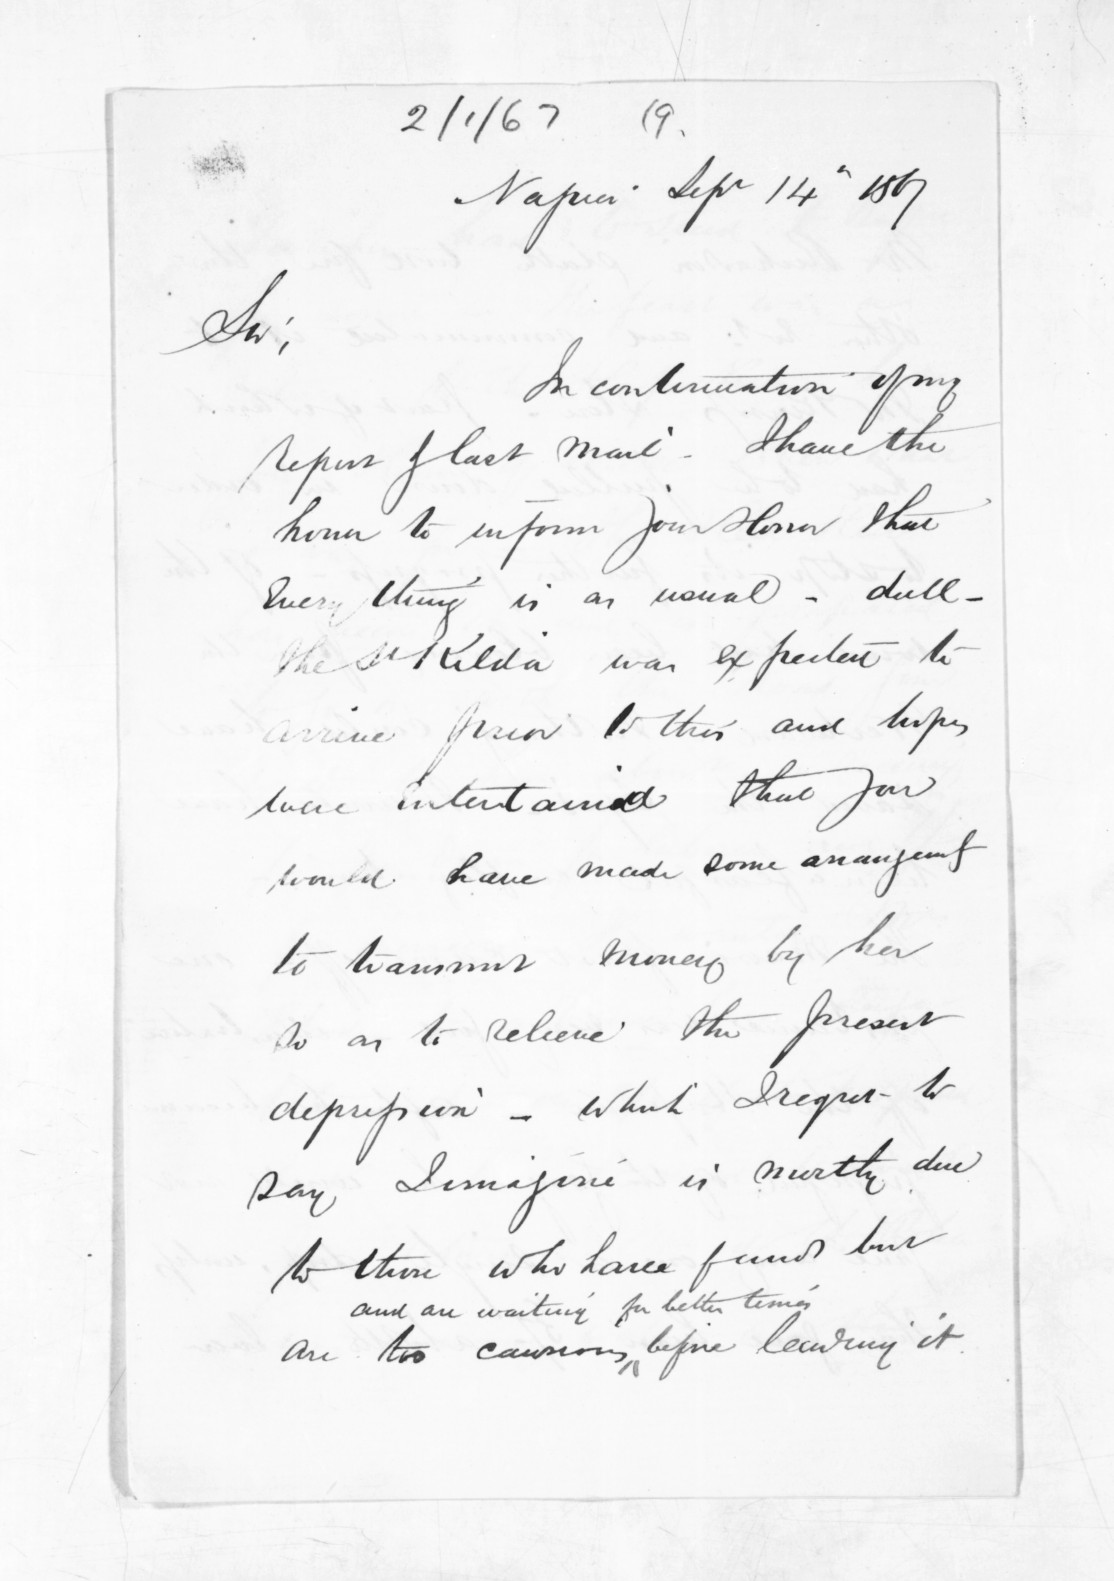 2/1/67 19.
Napier Sept 14th 1867
Sir,
In continuation of my
report of last mail - I have the
honor to inform your Honor that
Every thing is as usual - dull -
the St Kilda was expected to
arrive prior to this and hopes
were entertained that you
would have made some arrangemt
to transmit money by her
so as to relieve the present
depression - which I regret to
say I imagine is mostly due
to those who have funds but
and are waiting for better times
are too cautious before lending it.